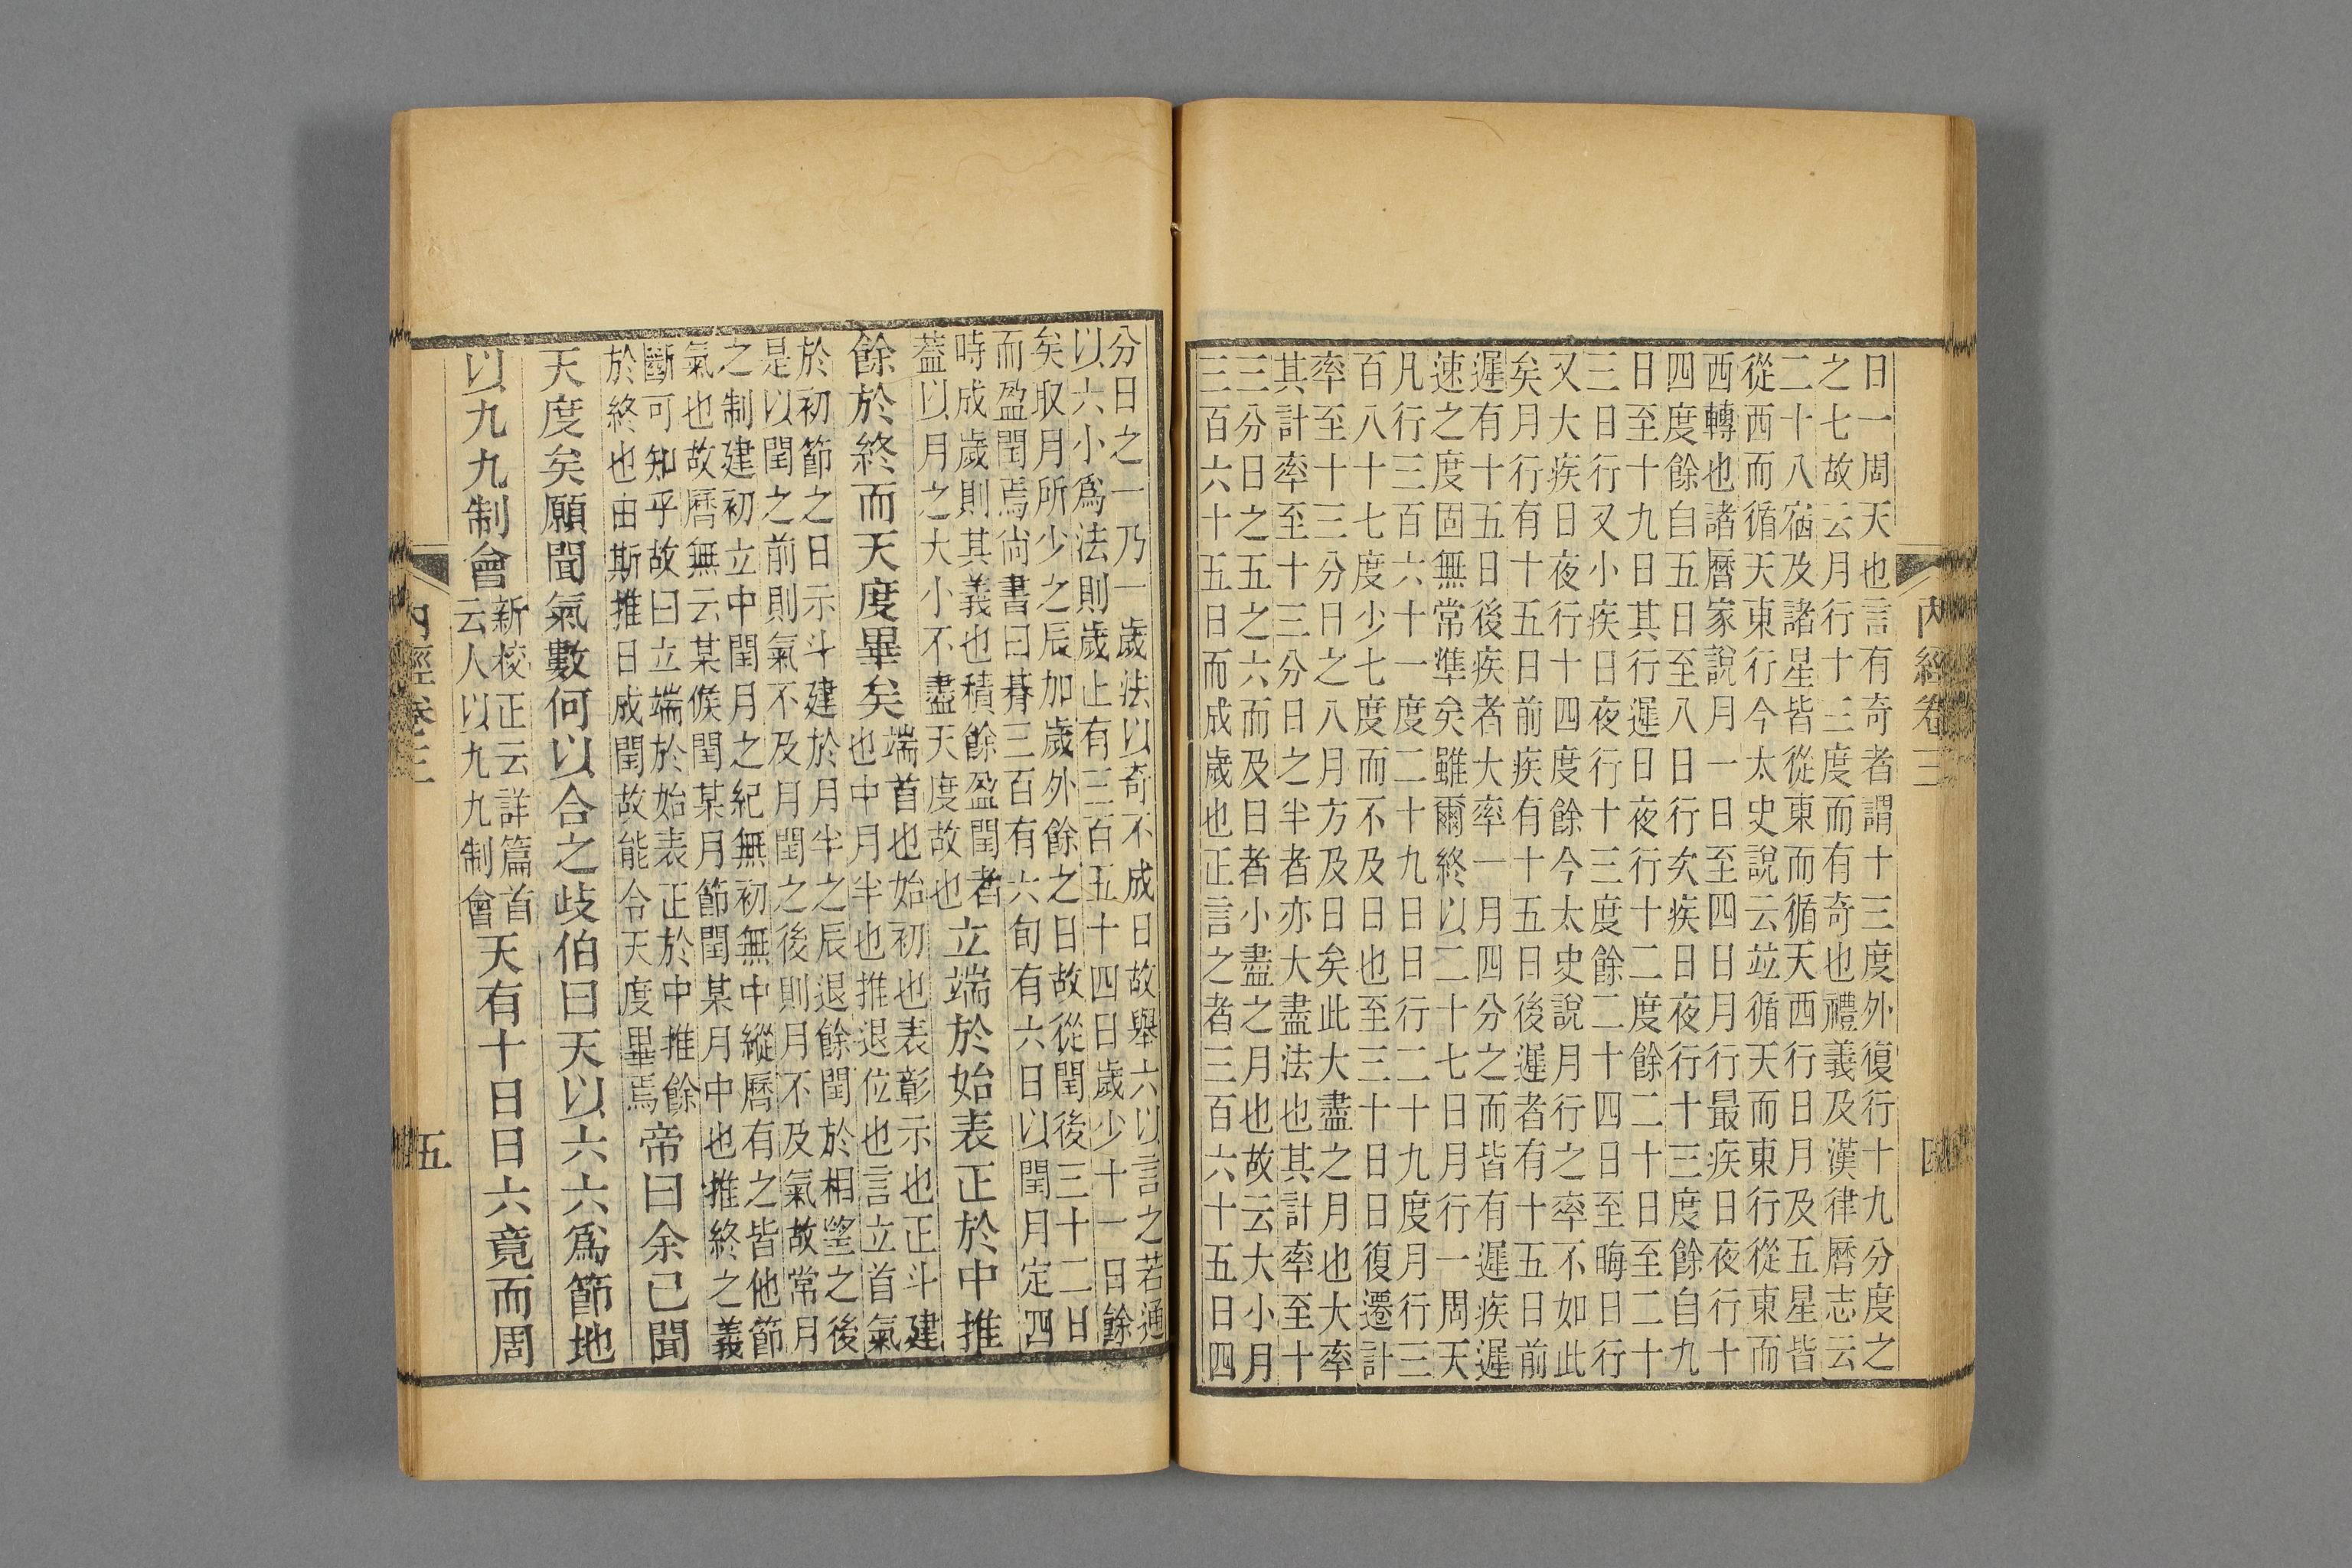 日一周天也言有奇者謂十三度外復行十九分度之
之七故云月行十三度而有奇也禮義及漢律曆志云
二十八宿及諸星皆從東而循天西行日月及五星皆
從西而循天東行今太史說云竝循天而東行從東而
西轉也諸曆家說月一日至四日月行最疾日夜行十
四度餘自五日至八日行次疾日夜行十三度餘自九
日至十九日其行遲日夜行十二度餘二十日至二十
三日行又小疾日夜行十三度餘二十四日至晦日行
又大疾日夜行十四度餘今太史說月行之率不如此
矣月行有十五日前疾有十五日後遲者有十五日前
遲有十五日後疾者大率一月四分之而皆有遲疾遲
速之度固無常準矣雖爾終以二十七日月行一周天
凡行三百六十一度二十九日日行二十九度月行三
百八十七度少七度而不及日也至三十日日復遷計
率至十三分日之八月方及日矣此大盡之月也大率
其計率至十三分日之半者亦大盡法也其計率至十
三分日之五之六而及日者小盡之月也故云大小月
三百六十五日而成歲也正言之者三百六十五日四
內經卷三
四
分日之一乃一歲法以奇不成日故舉六以言之若通
以六小爲法則歲止有三百五十四日歲少十一日餘
矣取月所少之辰加歲外餘之日故從閏後三十二日
而盈閏焉尙書曰朞三百有六旬有六日以閏月定四
時成歲則其義也積餘盈閏者
蓋以月之大小不盡天度故也
立端於始表正於中推
餘於終而天度畢矣
端首也始初也表彰示也正斗建
也中月半也推退位也言立首氣
於初節之日示斗建於月半之辰退餘閏於相望之後
是以閏之前則氣不及月閏之後則月不及氣故常月
之制建初立中閏月之紀無初無中縱曆有之皆他節
氣也故曆無云某候閏某月節閏某月中也推終之義
斷可知乎故曰立端於始表正於中推餘
於終也由斯推日成閏故能令天度畢焉
帝曰余已聞
天度矣願聞氣數何以合之歧伯曰天以六六爲節地
以九九制會
新校正云詳篇首
云人以九九制會
天有十日日六竟而周
內經卷三
五